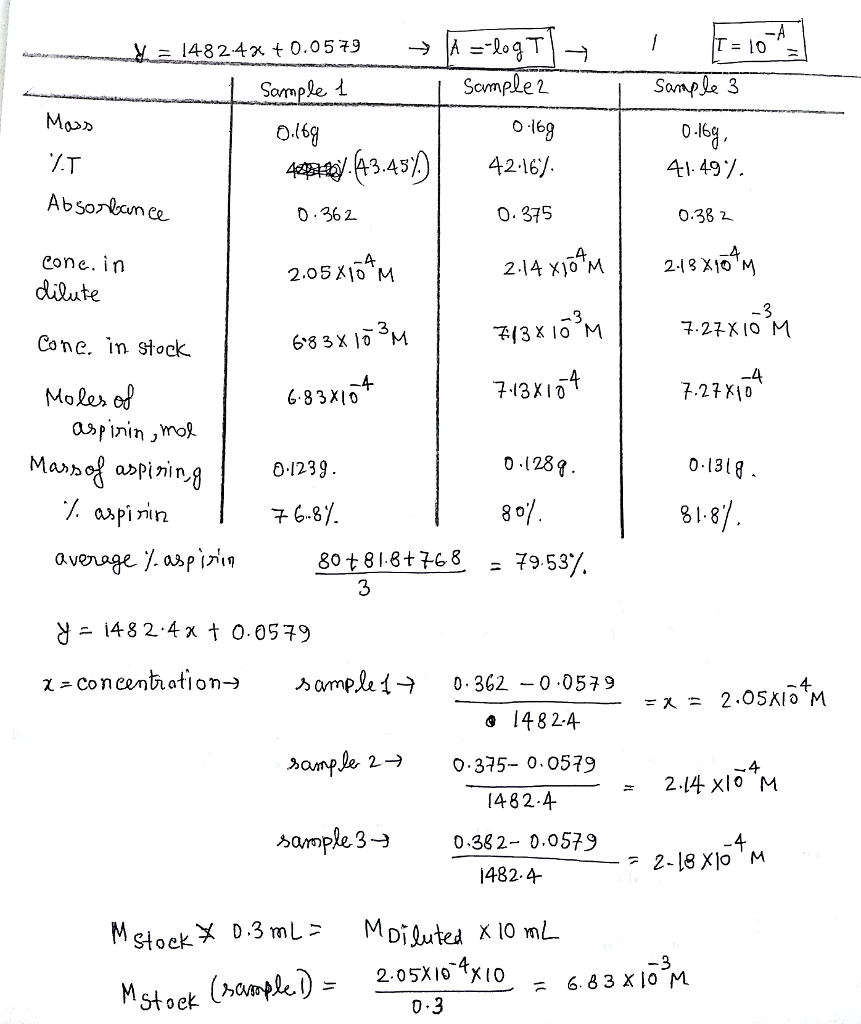 y = 1482.4x + 0.0579 → A = -log T → / T = 10^-A =
Sample 1 Sample 2 Sample 3
Mass 0.16g 0.16g 0.16g,
%T (43.45%) 42.16%. 41.49%.
Absorbance 0.362 0.375 0.382
conc. in dilute 2.05 x 10^-4 M 2.14 x 10^-4 M 2.18 x 10^-4 M
Conc. in stock 6.83 x 10^-3 M 7.13 x 10^-3 M 7.27 x 10^-3 M
Moles of aspirin, mol 6.83 x 10^-4 7.13 x 10^-4 7.27 x 10^-4
Mass of aspirin, g 0.123g. 0.128g. 0.131g.
% aspirin 76.8%. 80%. 81.8%.
average % aspirin 80 + 81.8 + 76.8 / 3 = 79.53%.
y = 1482.4x + 0.0579
x = concentration → sample 1 → 0.362 - 0.0579 / 1482.4 = x = 2.05 x 10^-4 M
sample 2 → 0.375 - 0.0579 / 1482.4 = 2.14 x 10^-4 M
sample 3 → 0.382 - 0.0579 / 1482.4 = 2.18 x 10^-4 M
M stock x 0.3 mL = M Diluted x 10 mL
M stock (sample 1) = 2.05 x 10^-4 x 10 / 0.3 = 6.83 x 10^-3 M